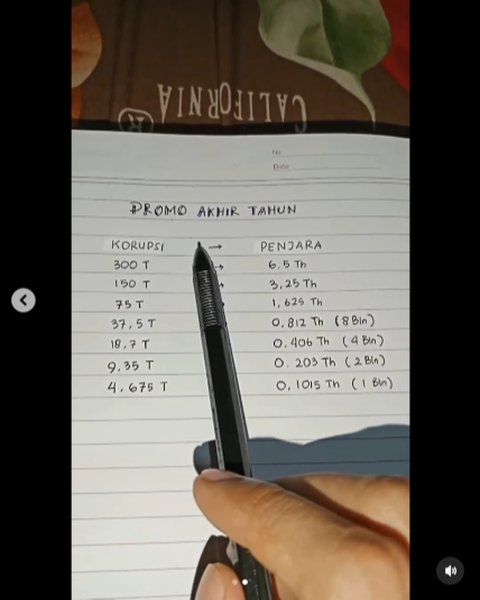 CALIFORNIA
R
No
Date
PROMO AKHIR TAHUN
KORUPSI → PENJARA
300 T → 6.5 Th
150 T → 3,25 Th
75 T → 1,625 Th
37,5 T 0,812 Th (8 Bln)
18,7 T 0.406 Th (4 Bln)
9.35 T 0.203 Th (2 Bln)
4.675 T 0,1015 Th (1 Bln)